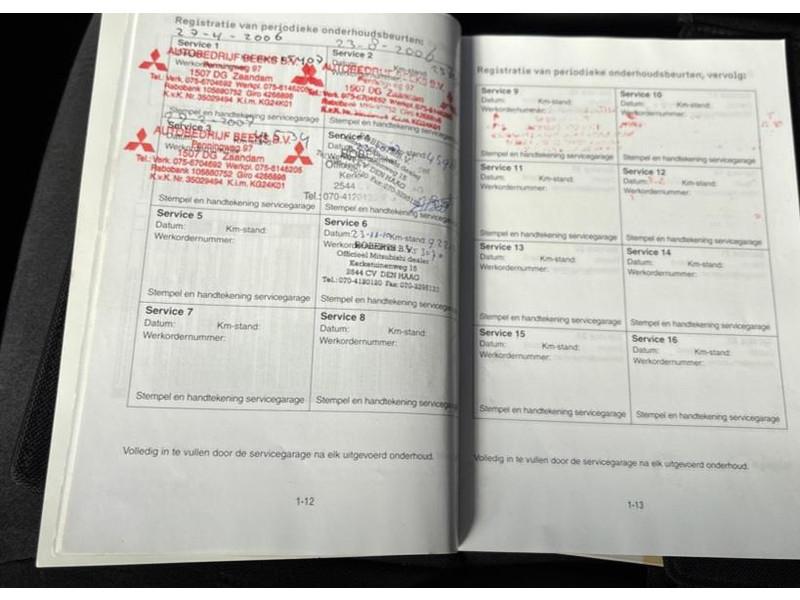 Registratie van periodieke onderhoudsbeurten:
27-4-2006
Service 1
AUTOBEDRIJF BEEKS B.V.
Penningweg 97
1507 DG Zaandam
Tel.: Verk. 075-6704692 Werkpl. 075-6146205
Rabobank 105680752 Giro 4266898
K.v.K. Nr. 35029494 K.i.m. KG24K01
Stempel en handtekening servicegarage
Service 2
Km-stand:
1507 DG Zaandam
Stempel en handtekening servicegarage
Service 3
AUTOBEDRIJF BEEKS B.V.
Penningweg 97
1507 DG Zaandam
Tel.: Verk. 075-6704692 Werkpl. 075-6146205
Rabobank 105680752 Giro 4266898
K.v.K. Nr. 35029494 K.i.m. KG24K01
Stempel en handtekening servicegarage
Service 4
2544
DEN HAAG
Stempel en handtekening
Service 5
Datum: Km-stand:
Werkordernummer:
Stempel en handtekening servicegarage
Service 6
Datum: Km-stand:
ROBERTS B.V.
Officieel Mitsubishi dealer
Kerketuinenweg 15
2544 CV DEN HAAG
Tel.: 070-4120120 Fax: 070-3295122
Stempel en handtekening servicegarage
Service 7
Datum: Km-stand:
Werkordernummer:
Stempel en handtekening servicegarage
Service 8
Datum: Km-stand:
Werkordernummer:
Stempel en handtekening servicegarage
Volledig in te vullen door de servicegarage na elk uitgevoerd onderhoud.
1-12
Registratie van periodieke onderhoudsbeurten, vervolg:
Service 9
Datum: Km-stand:
Werkordernummer:
Stempel en handtekening servicegarage
Service 10
Datum: Km-stand:
Werkordernummer:
Stempel en handtekening servicegarage
Service 11
Datum: Km-stand:
Werkordernummer:
Stempel en handtekening servicegarage
Service 12
Datum: Km-stand:
Werkordernummer:
Stempel en handtekening servicegarage
Service 13
Datum: Km-stand:
Werkordernummer:
Stempel en handtekening servicegarage
Service 14
Datum: Km-stand:
Werkordernummer:
Stempel en handtekening servicegarage
Service 15
Datum: Km-stand:
Werkordernummer:
Stempel en handtekening servicegarage
Service 16
Datum: Km-stand:
Werkordernummer:
Stempel en handtekening servicegarage
Volledig in te vullen door de servicegarage na elk uitgevoerd onderhoud.
1-13